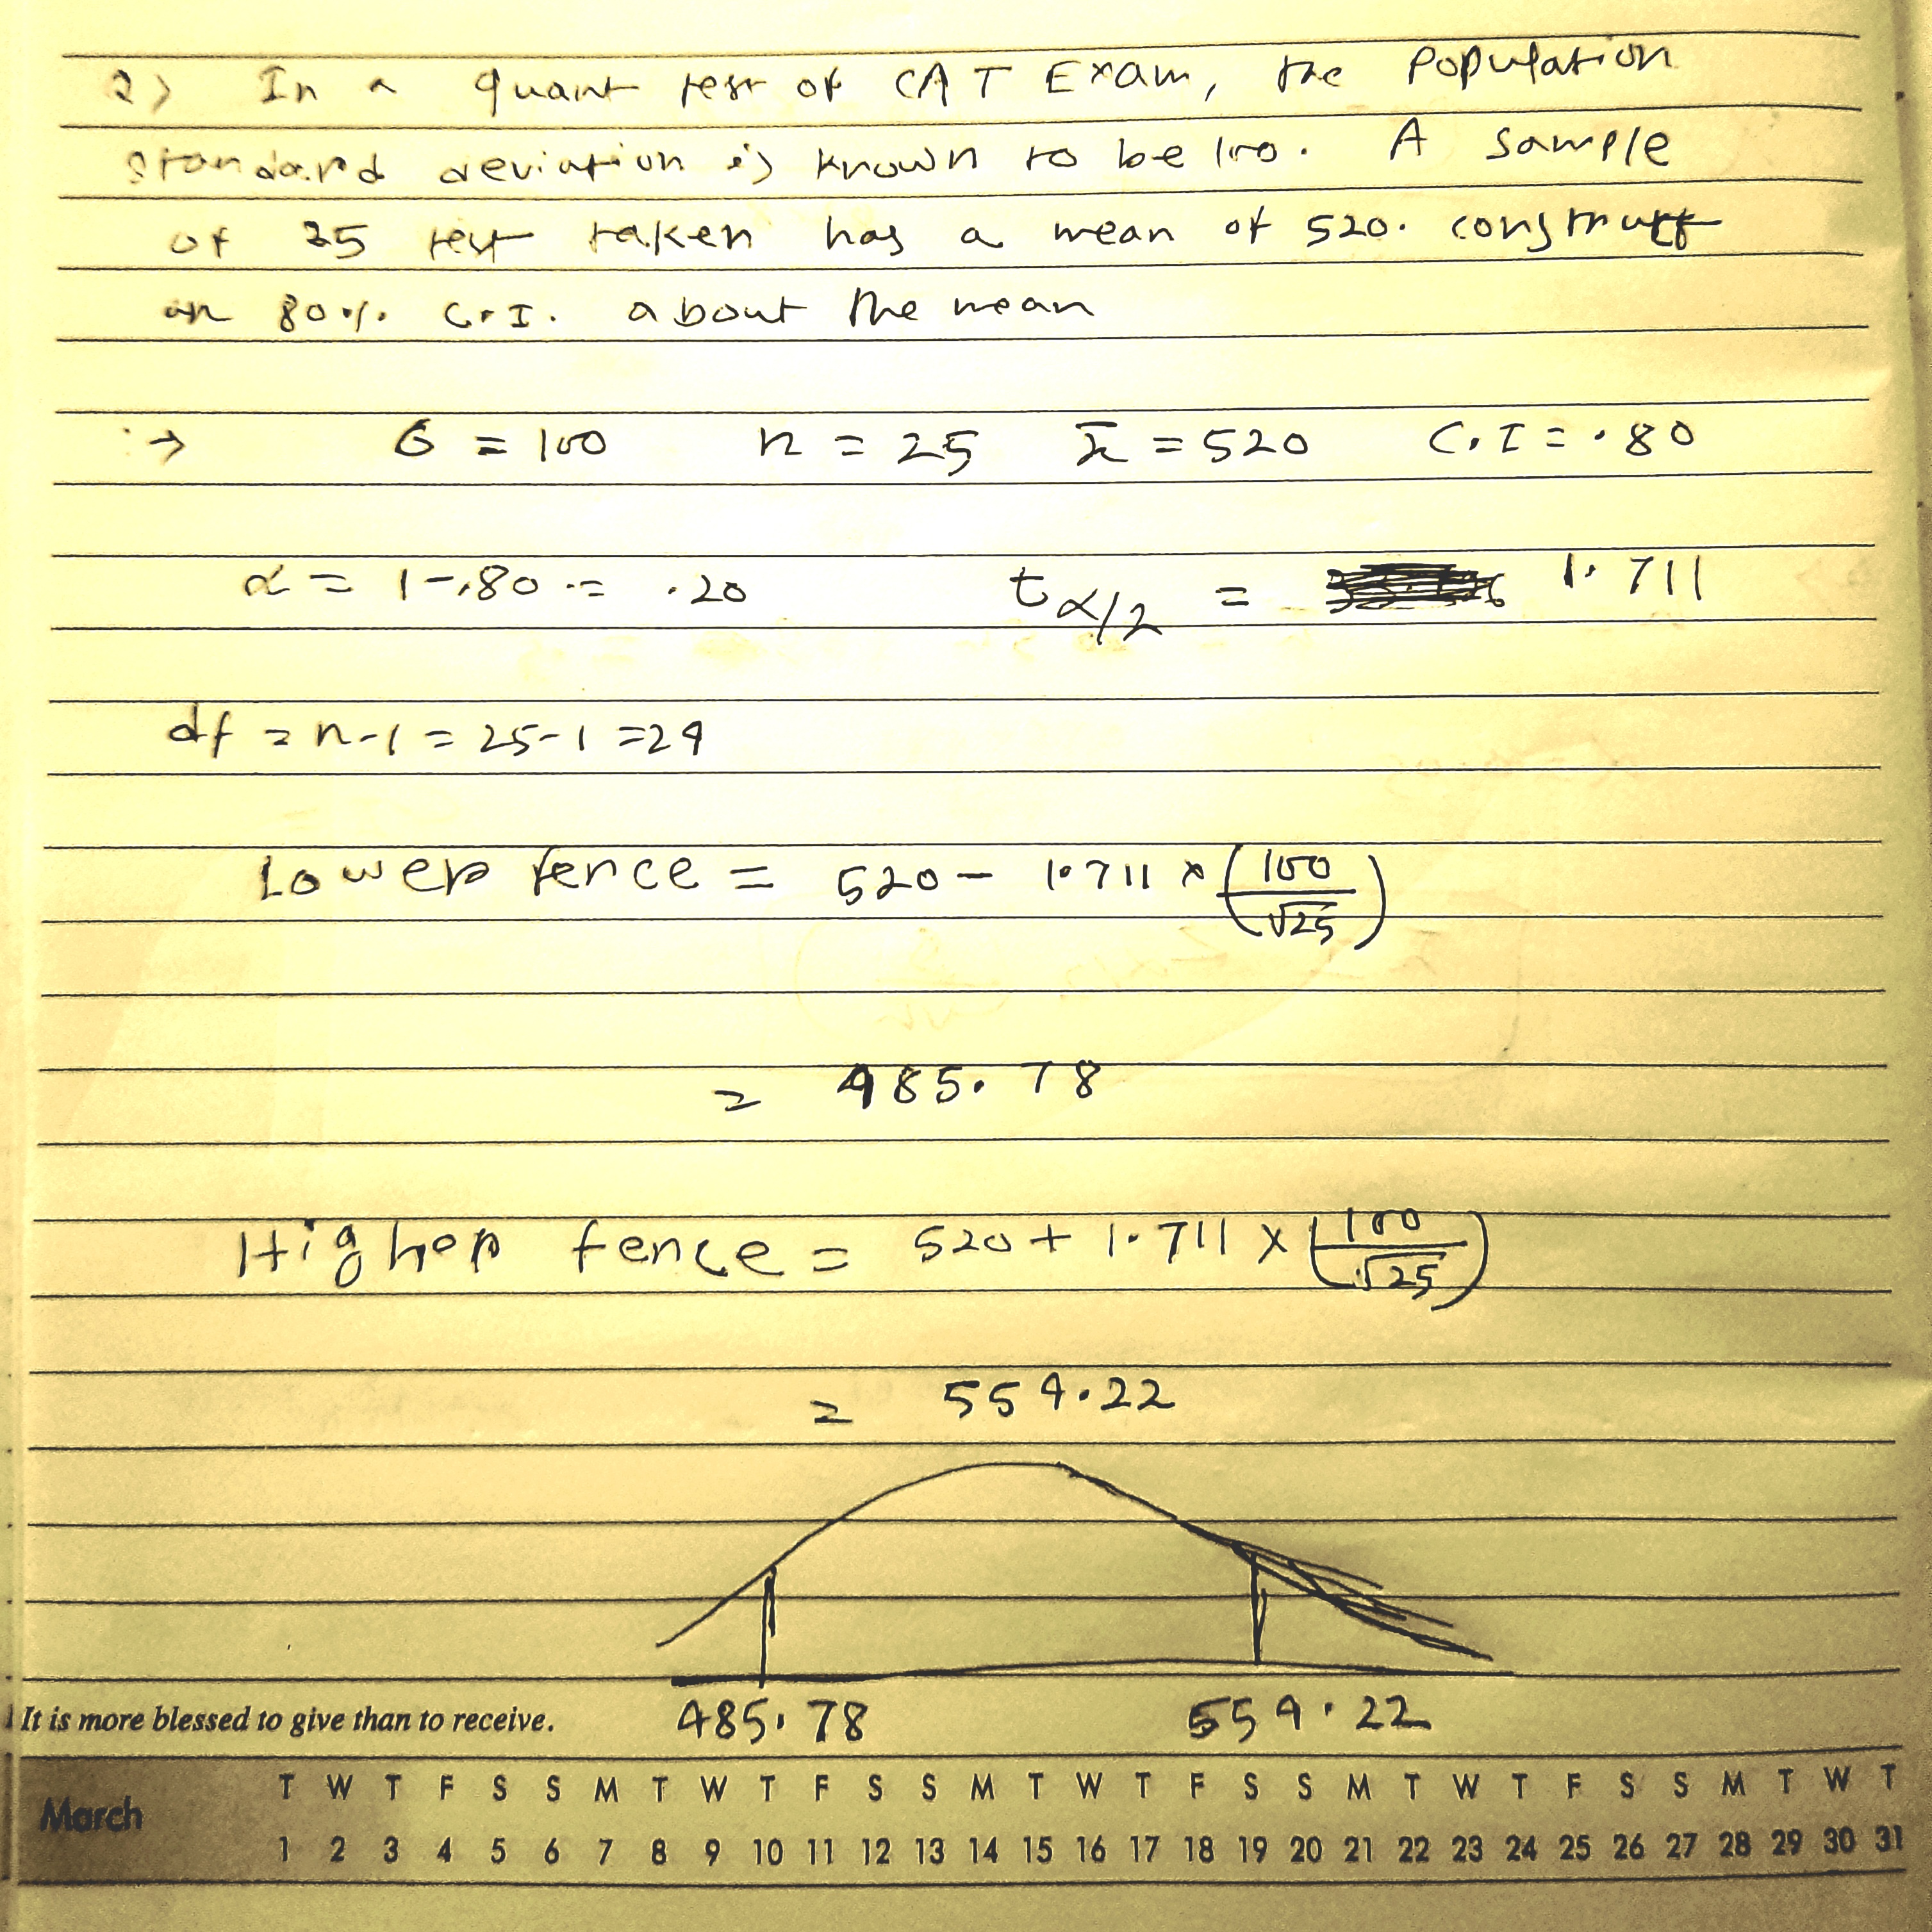 2) In a quant test of CAT Exam, the Population
standard deviation is known to be 100. A sample
of 25 test taken has a mean of 520. construct
an 80%. C.I. about the mean
→ σ = 100 n = 25 x̄ = 520 C.I = .80
α = 1-.80 = .20 t α/2 = 1.711
df = n-1 = 25-1 = 24
Lower fence = 520 - 1.711 × (100/√25)
= 485.78
Higher fence = 520 + 1.711 × (100/√25)
= 554.22
485.78 554.22
It is more blessed to give than to receive.
T W T F S S M T W T F S S M T W T F S S M T W T F S S M T W T
March
1 2 3 4 5 6 7 8 9 10 11 12 13 14 15 16 17 18 19 20 21 22 23 24 25 26 27 28 29 30 31